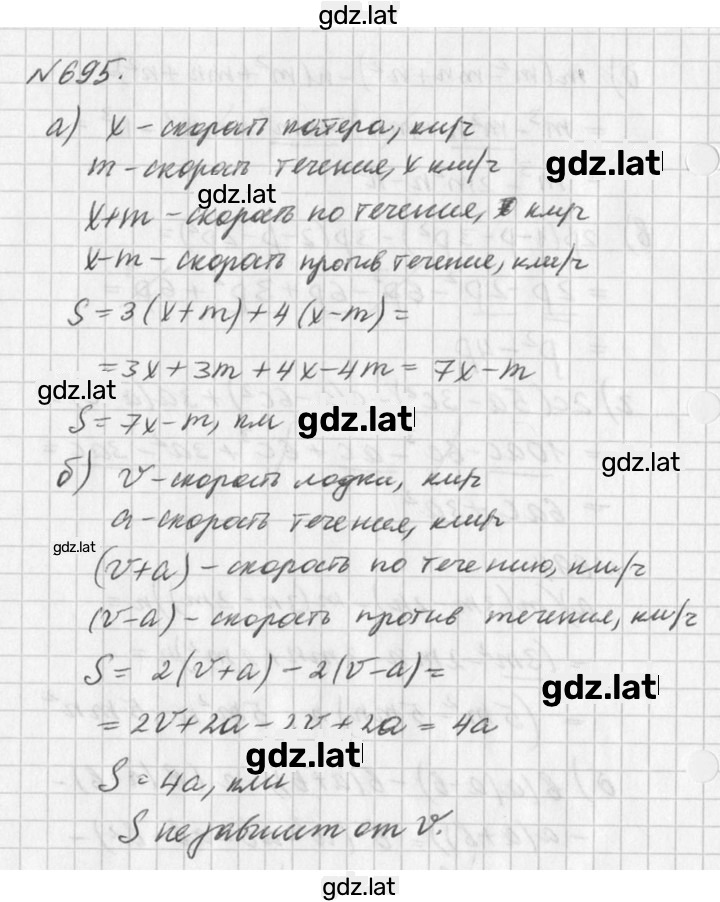 gdz.lat
№695.
а) x – скорость катера, км/ч
m – скорость течения, x км/ч
gdz.lat
gdz.lat
x+m – скорость по течения, км/ч
x-m – скорость против течение, км/ч
S = 3(x+m)+4(x-m)=
=3x+3m+4x-4m = 7x-m
gdz.lat
S = 7x-m, км
gdz.lat
gdz.lat
б) v – скорость лодки, км/ч
a – скорость течения, км/ч
gdz.lat
(v+a) – скорость по течению, км/ч
(v-a) – скорость против течения, км/ч
S = 2(v+a) – 2(v-a) =
gdz.lat
= 2v+2a – 2v+2a = 4a
gdz.lat
S = 4a, км
S не зависит от v.
gdz.lat